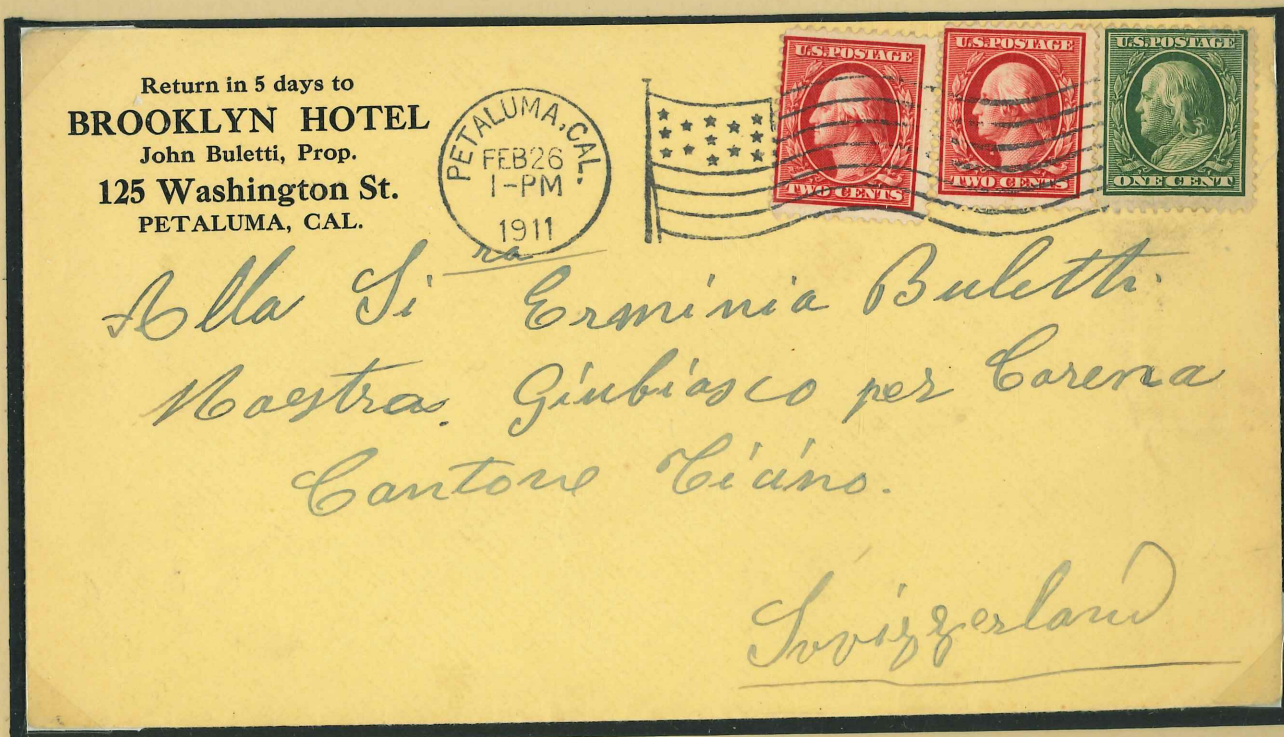 Return in 5 days to
BROOKLYN HOTEL
John Buletti, Prop.
125 Washington St.
PETALUMA, CAL.
PETALUMA, CAL.
FEB 26
1-PM
1911
U.S. POSTAGE
TWO CENTS
U.S. POSTAGE
TWO CENTS
U.S. POSTAGE
ONE CENT
Alla Si ra Erminia Buletti
Maestra. Giubiasco per Carena
Cantone Ticino.
Svvizzerland